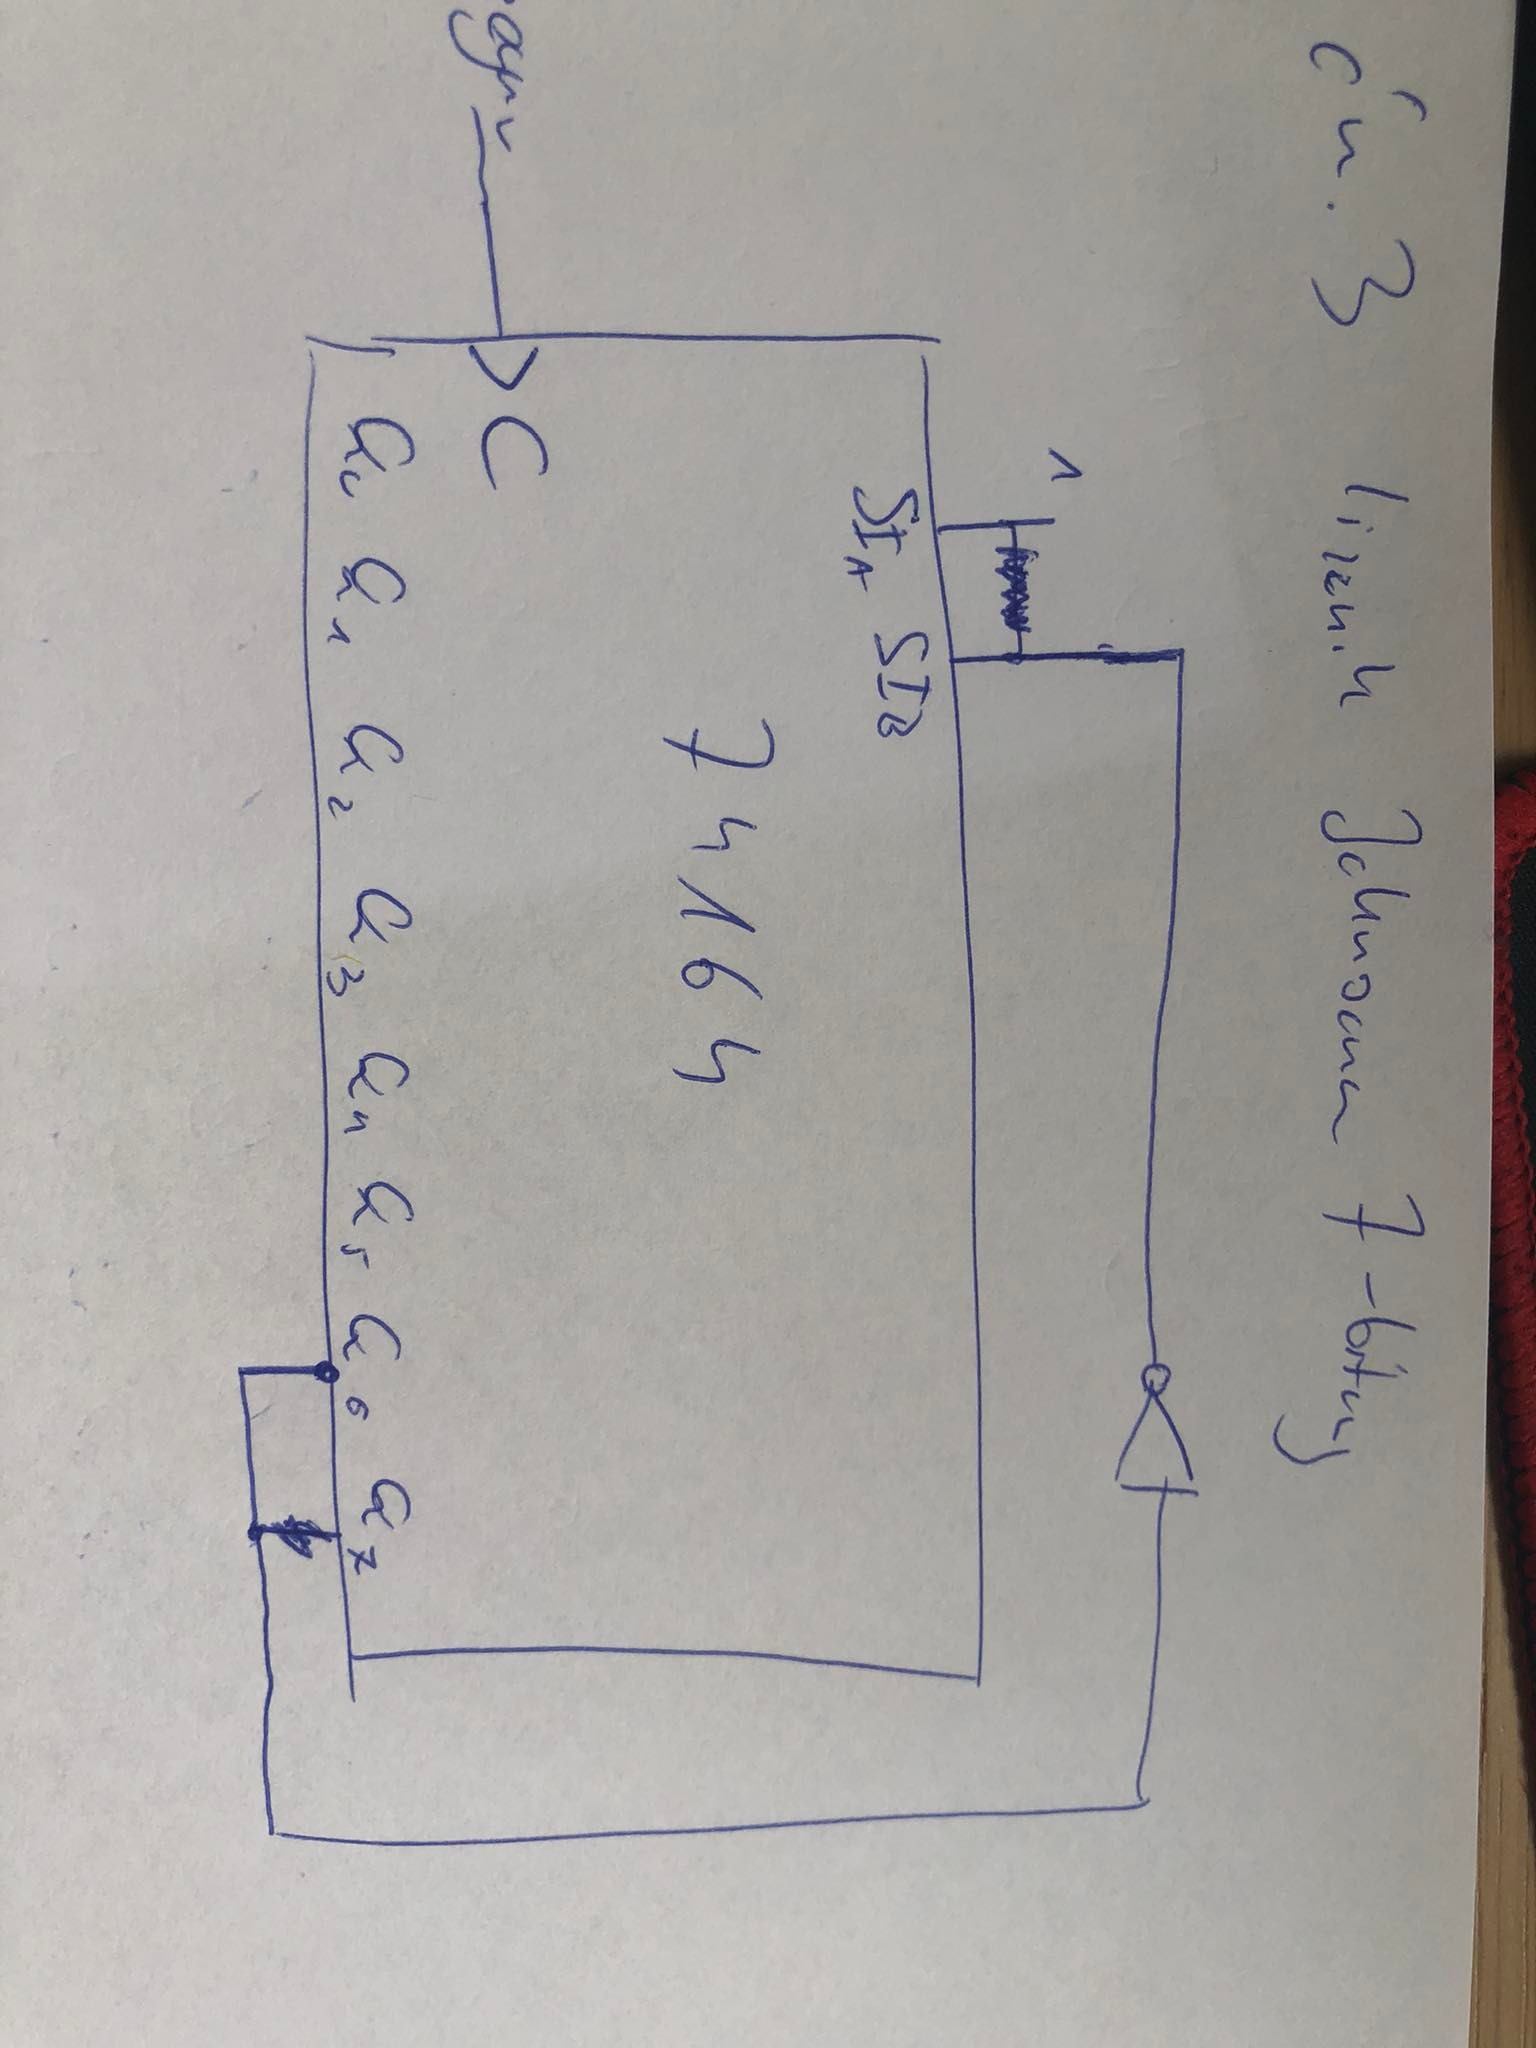 ćw. 3 licznik Johnsona 7-bitowy
1
SIA SIB
74164
C
Q0 Q1 Q2 Q3 Q4 Q5 Q6 Q7